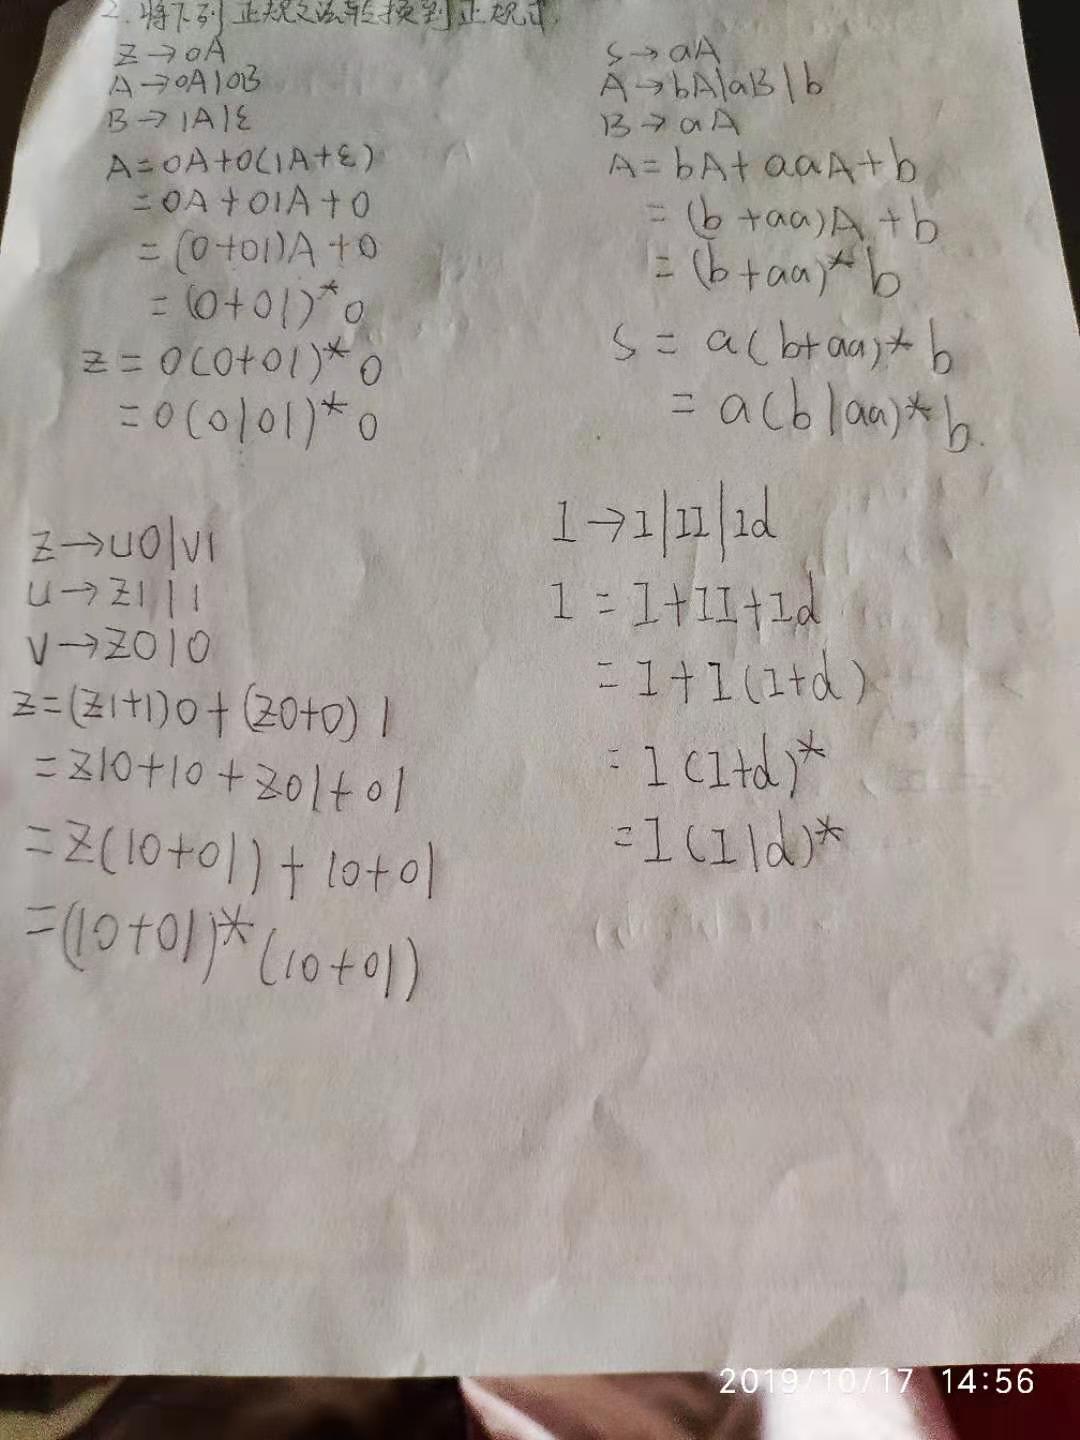 2.将下列正规文法转换到正规式
Z→0A
A→0A|0B
B→1A|ε
A=0A+0(1A+ε)
=0A+01A+0
=(0+01)A+0
=(0+01)*0
Z=0(0+01)*0
=0(0|01)*0
S→aA
A→bA|aB|b
B→aA
A=bA+aaA+b
=(b+aa)A+b
=(b+aa)*b
S=a(b+aa)*b
=a(b|aa)*b.
Z→U0|V1
U→Z1|1
V→Z0|0
Z=(Z1+1)0+(Z0+0)1
=Z10+10+Z01+01
=Z(10+01)+10+01
=(10+01)*(10+01)
I→I|II|Id
I=I+II+Id
=I+I(I+d)
=I(I+d)*
=I(I|d)*
2019/10/17 14:56